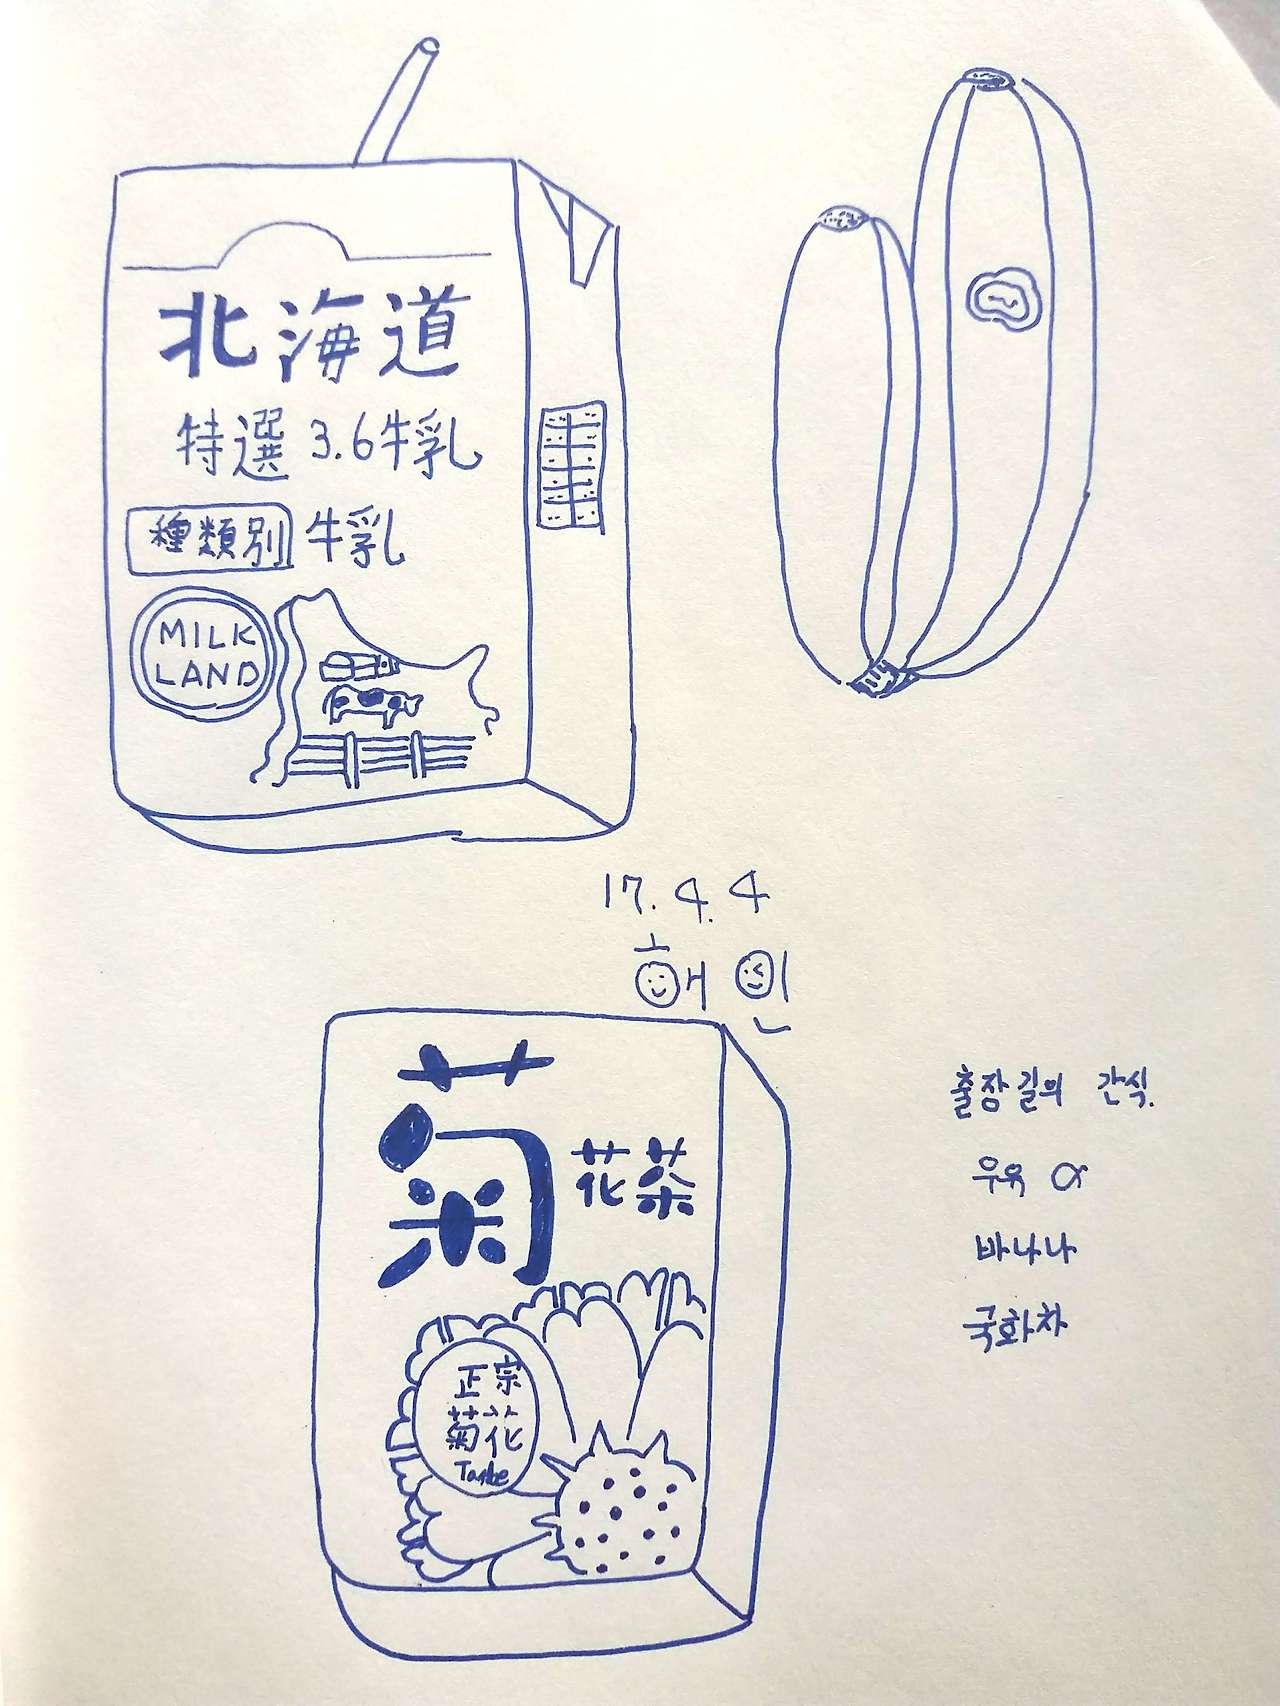 北海道
特選 3.6牛乳
種類別 牛乳
MILK
LAND
17.4.4
혜인
菊花茶
正宗
菊花
Taste
출장길의 간식.
우유 α
바나나
국화차